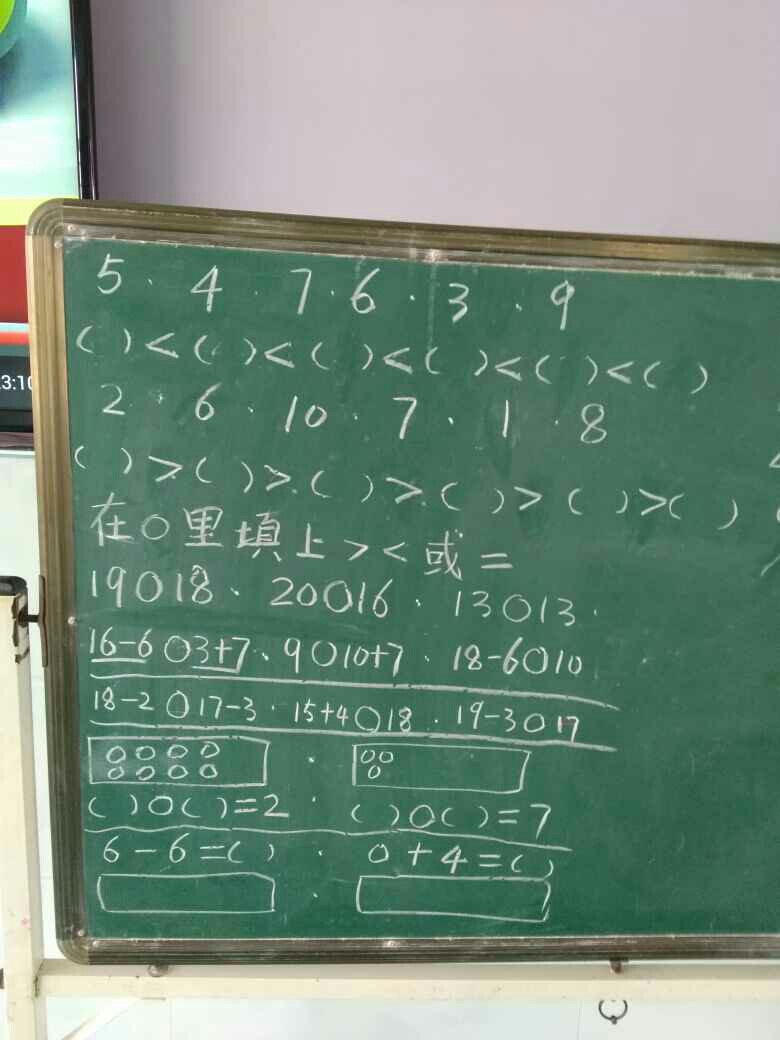 3:10
5 . 4 . 7 . 6 . 3 . 9
( ) < ( ) < ( ) < ( ) < ( ) < ( )
2 . 6 . 10 . 7 . 1 . 8
( ) > ( ) > ( ) > ( ) > ( ) > ( )
在○里填上 > < 或 =
19○18 . 20○16 . 13○13 .
16-6○3+7 . 9○10+7 . 18-6○10
18-2○17-3 . 15+4○18 . 19-3○17
( )○( )=2 . ( )○( )=7
6-6=( ) . 0+4=( )